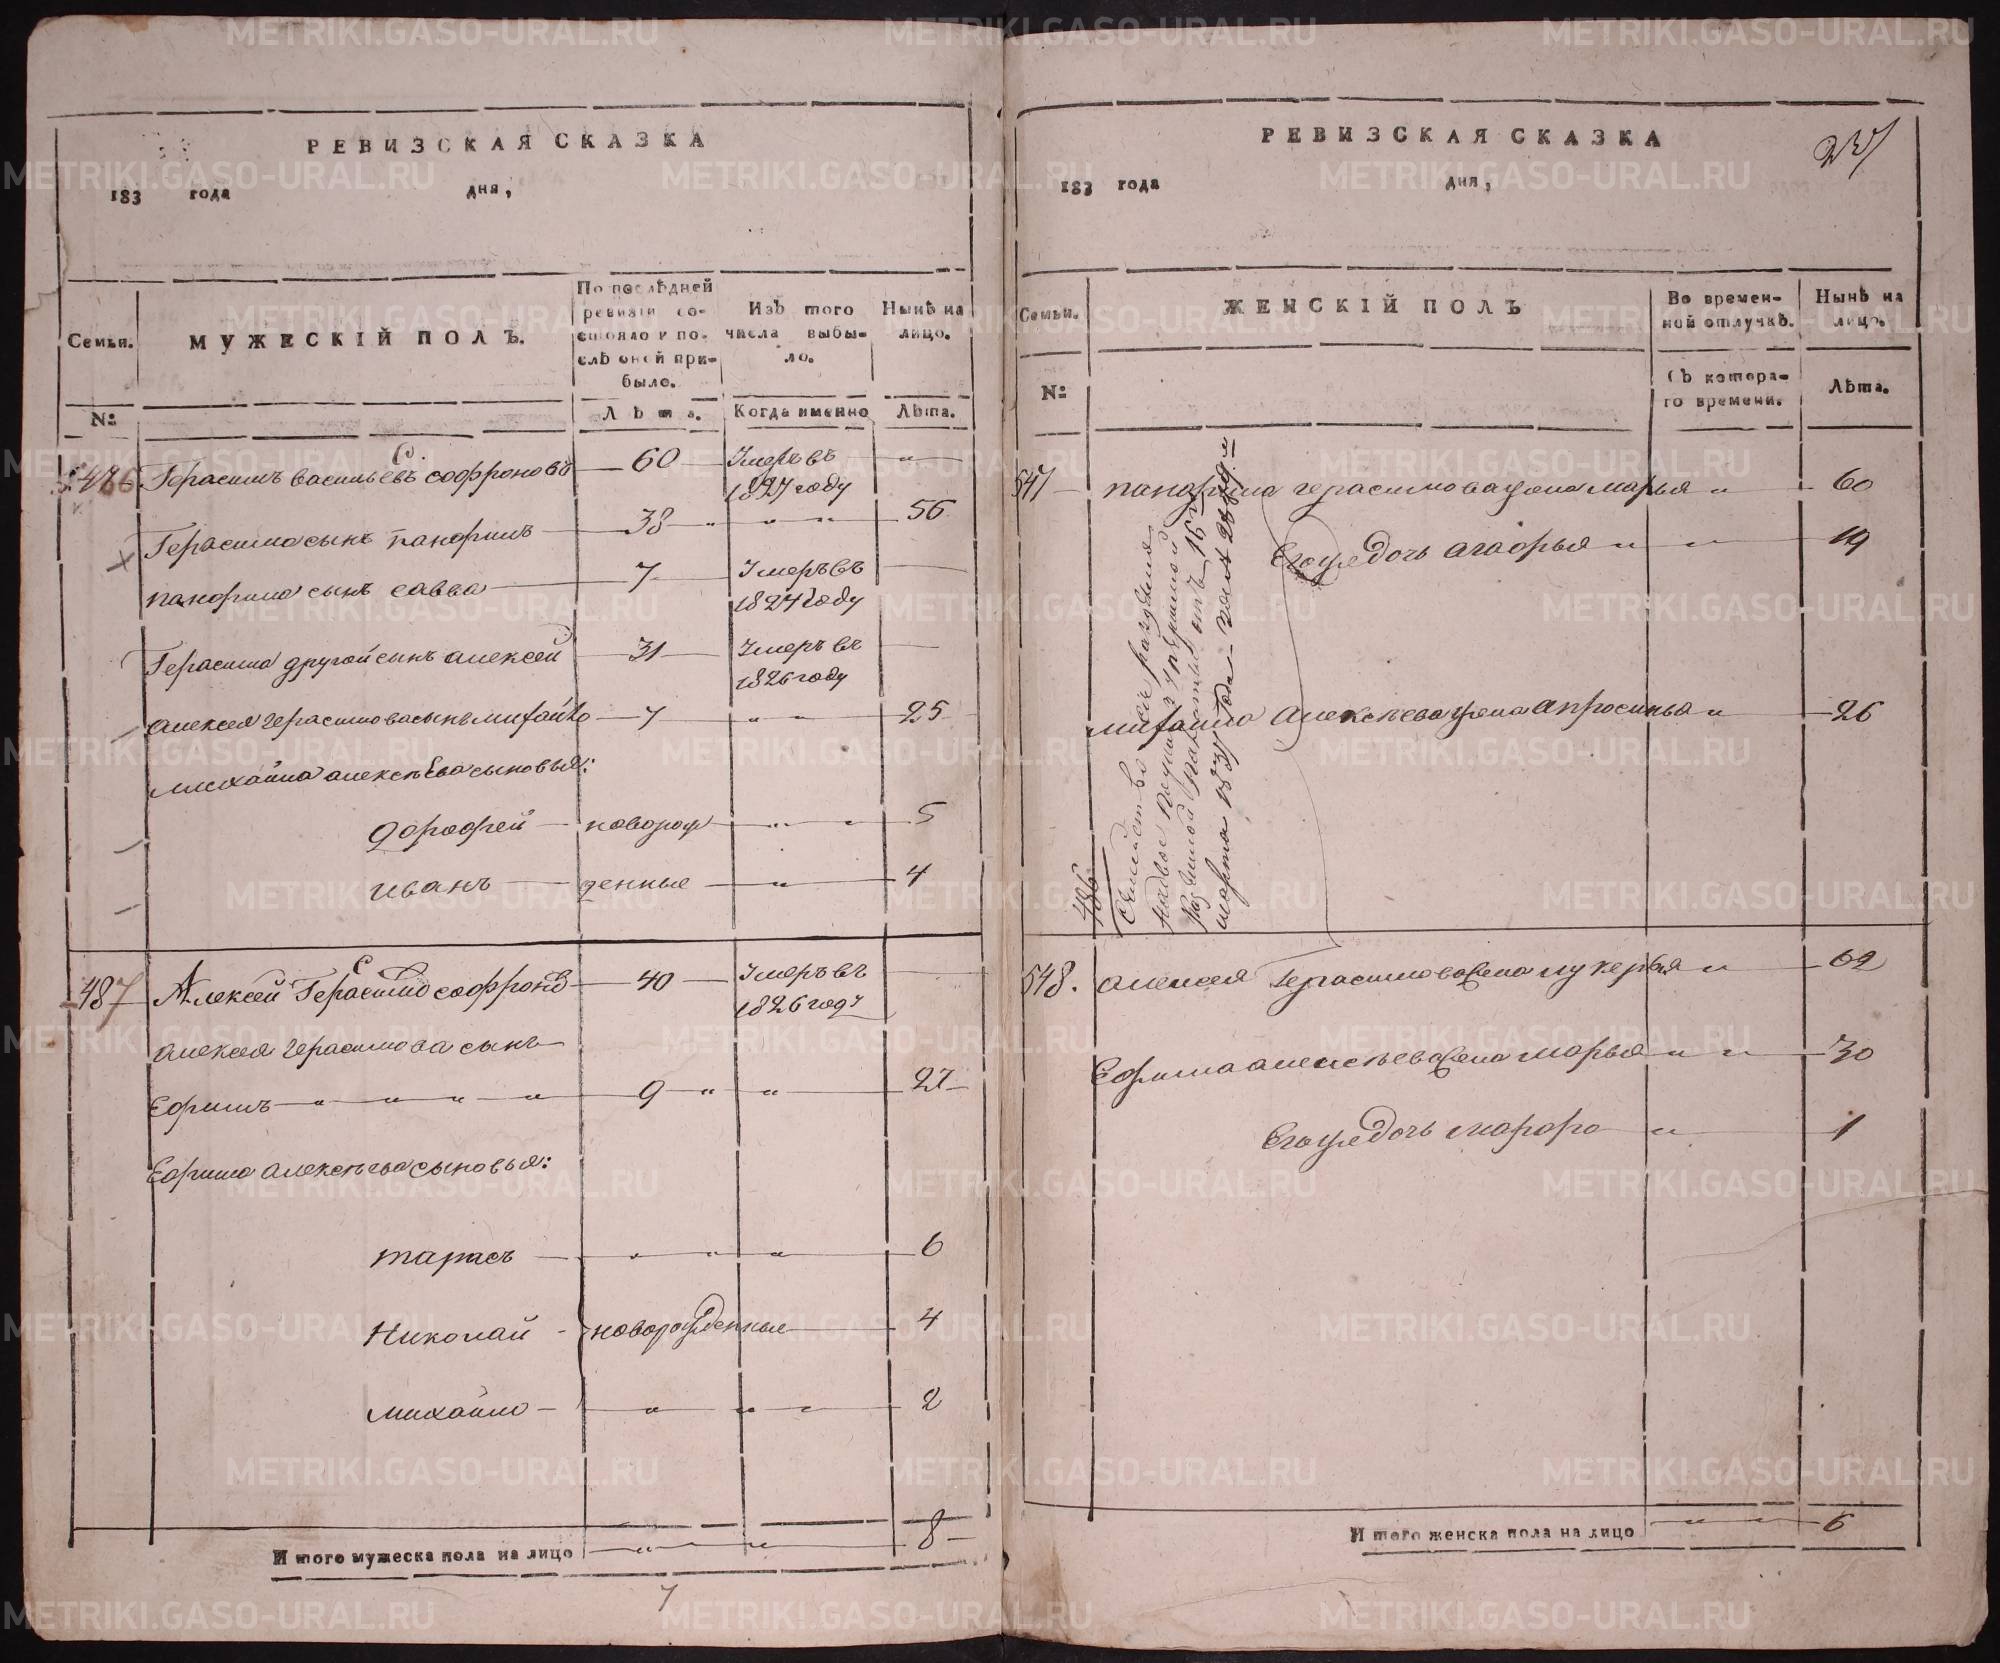 РЕВИЗСКАЯ СКАЗКА
183 года дня,
Семьи.
МУЖЕСКІЙ ПОЛЪ.
По послѣдней ревизіи состояло и послѣ оной прибыло.
Изъ того числа выбыло.
Нынѣ на лицо.
№
Лѣта.
Когда именно
Лѣта.
486 Герасимъ васильевъ софроновъ 60 Умеръ въ 1827 году
Герасима сынъ панфилъ 38 56
панфила сынъ савва 7 Умеръ въ 1824 году
Герасима другой сынъ алексей 31 Умеръ въ 1826 году
алексея герасимова сынъ михайло 7 25
михайла алексѣева сыновья:
дорофей новорож 5
иванъ денные 4
487 Алексей Герасимо софроно 40 Умеръ въ 1826 году
алексея герасимова сынъ
ефимъ 9 27
Ефима алексѣева сыновья:
тарасъ 6
Николай новорожденные 4
михайло 2
Итого мужеска пола на лицо 8
7
РЕВИЗСКАЯ СКАЗКА
183 года дня,
Семьи.
ЖЕНСКІЙ ПОЛЪ
Во временной отлучкѣ.
Нынѣ на лицо.
№
Съ котораго времени.
Лѣта.
547 панфила герасимова жена марья 60
Егожъ дочь агафья 19
михайла алексѣева жена апросинья 26
486
Семейство сіе
марта 183
548. алексея Герасимова жена лукерья 62
Ефима алексѣева жена марья 30
Егожъ дочь марфа 1
Итого женска пола на лицо 6
METRIKI.GASO-URAL.RU